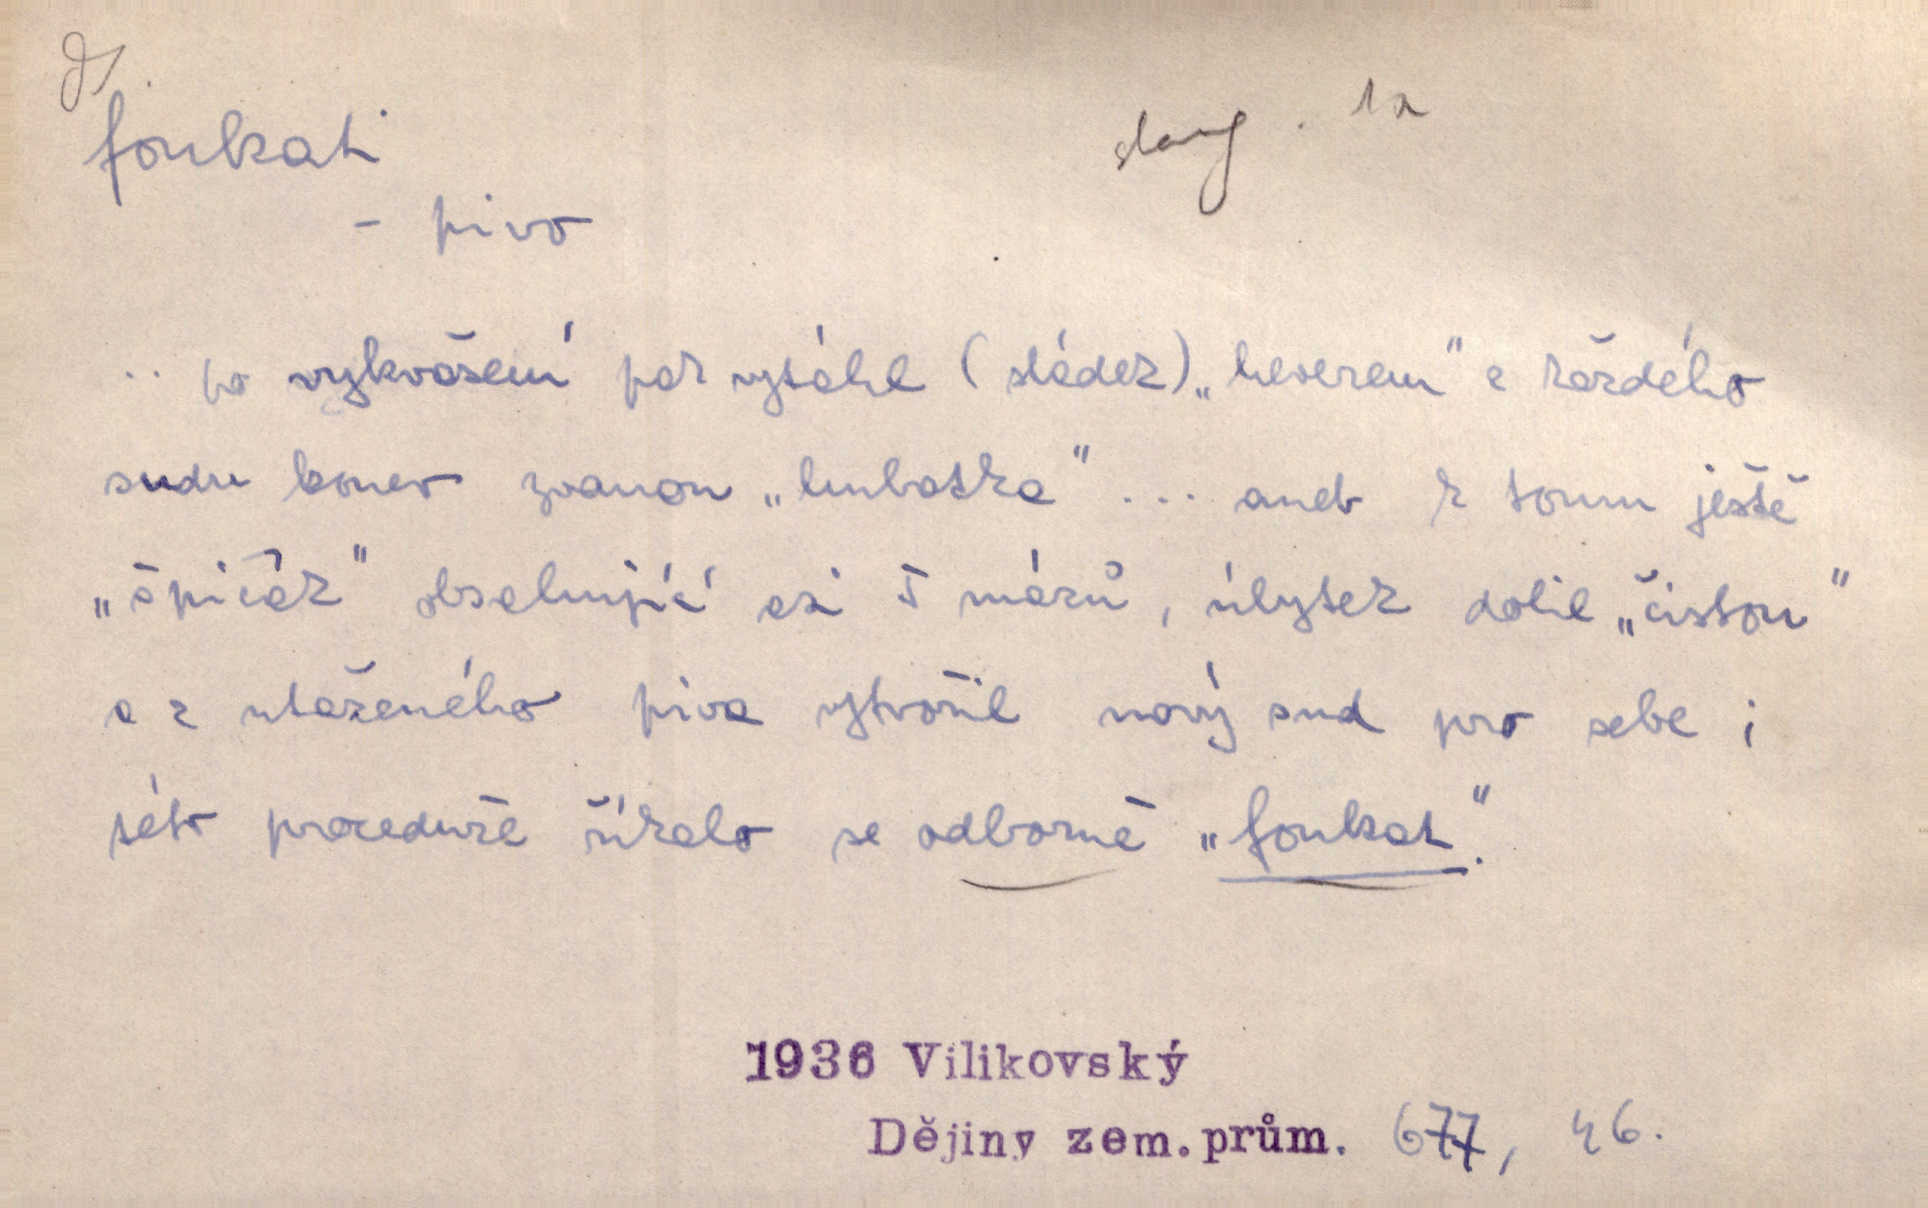 foukati
slang. 1x
- pivo
.. po vykvašení pak vytáhl (sládek) „heverem" z každého
sudu konev zvanou „hubatka" ... aneb k tomu ještě
„špičák" obsahující asi 5 mázů, úbytek dolil „čistou"
a z utaženého piva vytvořil nový sud pro sebe;
této proceduře říkalo se odborně „foukat".
1936 Vilikovský
Dějiny zem. prům. 677, 46.